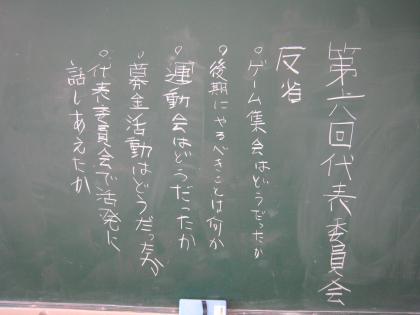 第六回代表委員会
反省
・ゲーム集会はどうだったか
・後期にやるべきことは何か
・運動会はどうだったか
・募金活動はどうだったか
・代表委員会で活発に
話しあえたか